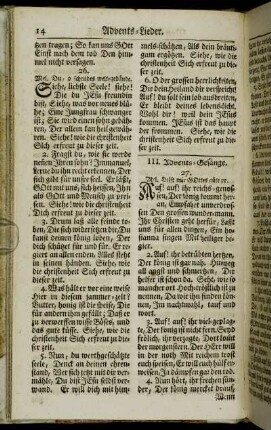 14 Advents-Lieder.
gen tragen; So kan uns GOtt
Einst nach dem tod Den himmel
nicht versagen.
26.
Siehe, liebste Seele! siehe!
Die du JEsu freundin
bist, Siehe, was vor neues blühe;
Eine Jungfrau schwanger
ist; Sie wird einen sohn gebähren,
Der allein kan heil gewähren.
Siehe! wie die christenheit
Sich erfreut zu dieser zeit.
2. Fragst du, wie sie werde
nennen Ihren sohn? Immanuel,
Lerne du ihn recht erkennen, Der
dein
GOtt mit uns, sich heissen, Ihn
als GOtt und Mensch zu preisen.
Siehe! wie die christenheit
Sich erfreut zu dieser zeit.
3. Drum laß alle feinde toben,
Die sich widersetzen dir, Du
hast deinen könig loben, Der
dich schützet für und für. Er regiert
an allen enden, Alles steht
in seinen händen. Siehe! wie
die christenheit Sich erfreut zu
dieser zeit.
4. Was hält er vor eine weise
Hier in diesem jammer-zelt?
Butter, honig ist die speise, Die
für andern ihm gefällt; Daß er
zu verwerffen wisse Böses, und
das gute küsse. Siehe, wie die
christenheit Sich erfreut zu dieser
zeit.
5. Nun, du werthgeschätzte
seele, Denck an deinen ehrenstand,
Wer sich jetzt mit dir vermähle,
Du bist JEsu selbst verwandt.
Er will dich mit himmels-schätzen,
Als dein bräutigam
ergötzen. Siehe, wie die
christenheit Sich erfreut zu dieser
zeit.
6. O der grossen herrlichkeiten,
Die dein heiland dir verspricht!
Er bleibt deiner lebensleite.
Wohl dir! weil dein JEsus
kommen, JEsus ist das haupt
der frommen. Siehe, wie die
christenheit Sich erfreut zu dieser
zeit.
III. Advents-Gesänge.
27.
Auf! auf! ihr reichs-genossen,
Der könig kommt heran,
Empfahet unverdrossen
Den grossen wunder-mann.
Ihr Christen geht herfür, Laßt
uns vor allen dingen, Ein hosianna
singen Mit heiliger begier.
2. Auf! ihr betrübten hertzen,
Der könig ist gar nah. Hinweg
all angst und schmertzen, Der
helfer ist schon da. Seht, wie so
mancher ort Hoch-tröstlich ist zu
nennen, Da wir ihn finden können,
In nachtmahl, tauf und
wort.
3. Auf! auf! ihr viel-geplagten,
Der könig ist nicht fern. Seyd
frölich, ihr verzagten, Dort kömt
der morgenstern. Der HErr will
in der noth Mit reichem trost
euch speisen, Er will euch hülf erweisen,
Ja dämpfen gar den tod.
4. Nun hört, ihr frechen sünder,
Der könig mercket drauf,
Wenn